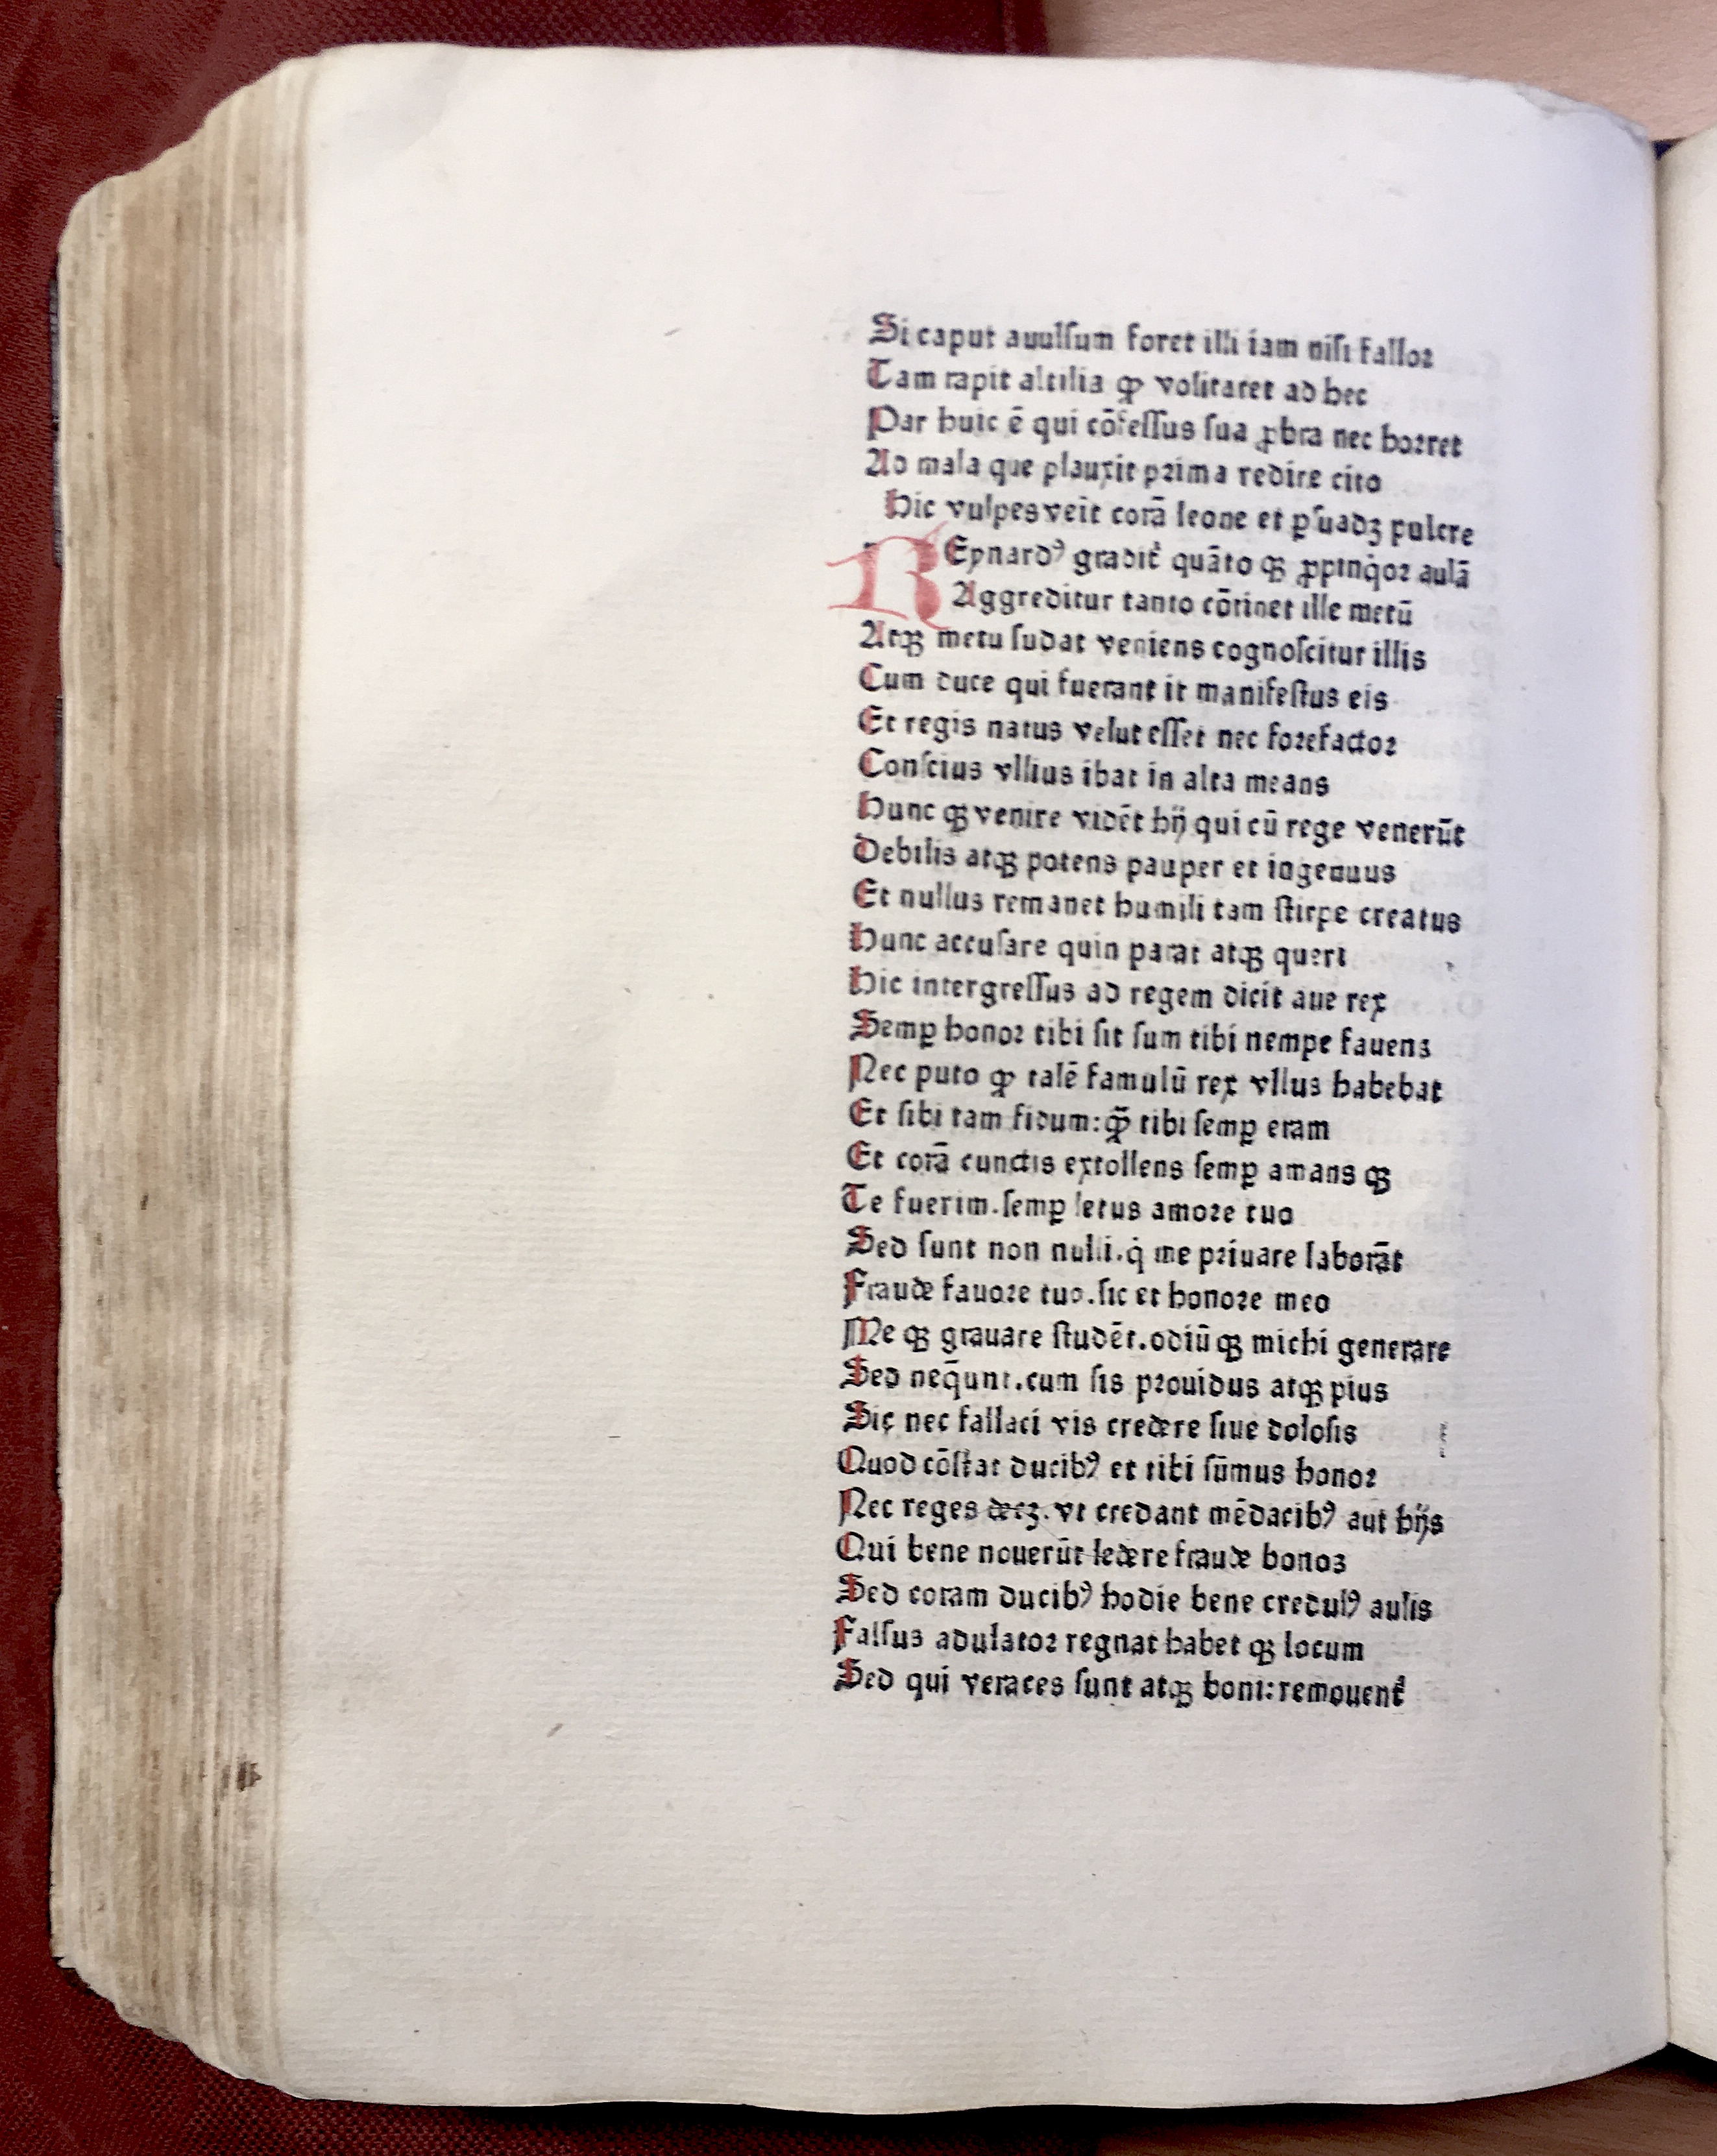 Si caput auulſum foret illi iam niſi falloꝛ
Tam rapit altilia ꝙ volitaret ad hec
Par huic ē qui cōfeſſus ſua ꝓbra nec hoꝛret
Ad mala que plauxit pꝛima redire cito
Hic vulpes veīt corā leone et ꝑſuadꝫ pulcre
REynardꝰ gradit᷑ quāto qꝫ ꝓpinq̇oꝛ aulā
Aggreditur tanto cōtinet ille metū
Atqꝫ metu ſudat veniens cognoſcitur illis
Cum duce qui fuerant it manifeſtus eis
Et regis natus velut eſſet nec foꝛefactoꝛ
Conſcius vllius ibat in alta means
Hunc qꝫ venire vidēt hij qui cū rege venerūt
Debilis atqꝫ potens pauper et ingenuus
Et nullus remanet humili tam ſtirpe creatus
Hunc accuſare quin parat atqꝫ queri
Hic intergreſſus ad regem dicit aue rex
Semꝑ honoꝛ tibi ſit ſum tibi nempe fauens
Nec puto ꝙ talē famulū rex vllus habebat
Et ſibi tam fidum: ꝙ̄ tibi ſemꝑ eram
Et corā cunctis extollens ſemꝑ amans qꝫ
Te fuerim. ſemꝑ letus amoꝛe tuo
Sed ſunt non nulli. q̇ me pꝛiuare laborāt
Fraude fauoꝛe tuo. ſic et honoꝛe meo
Me qꝫ grauare ſtudēt. odiū qꝫ michi generare
Sed neq̄unt. cum ſis pꝛouidus atqꝫ pius
Sic nec fallaci vis credere ſiue doloſis
Quod cōſtat ducibꝰ et tibi ſūmus honoꝛ
Nec reges decꝫ. vt credant mēdacibꝰ aut hijs
Qui bene nouerūt ledere fraude bonoꝫ
Sed coram ducibꝰ hodie bene credulꝰ aulis
Falſus adulatoꝛ regnat habet qꝫ locum
Sed qui veraces ſunt atqꝫ boni: remouent᷑